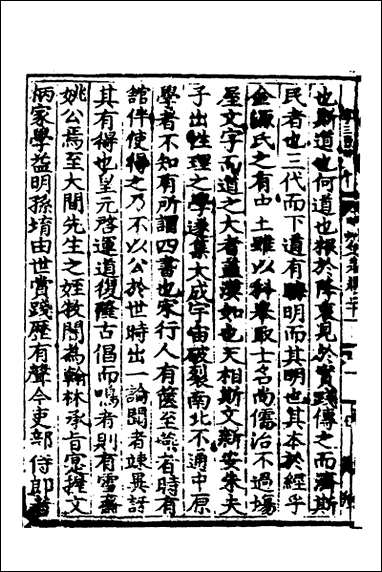 也斯道也何道也根於降衷見於實踐傳之而濟斯
民者也三代而下道有晦明而其明也其本於經乎
金源氏之有中土雖以科舉取士名尚儒治不過場
屋文字而道之大者蓋漠如也天相斯文新安朱夫
子出性理之學遂集大成宇宙破裂南北不通中原
學者不知有所謂四書也宋行人有篋至燕者時有
館伴使得之乃不以公於世時出一論聞者竦異訝
其有得也皇元啓運道復隆古倡而鳴者則有雪齋
姚公焉至大間先生之姪牧閹為翰林承旨寬擁文
炳家學益明孫堉由世賞踐歷有聲今吏部侍郎